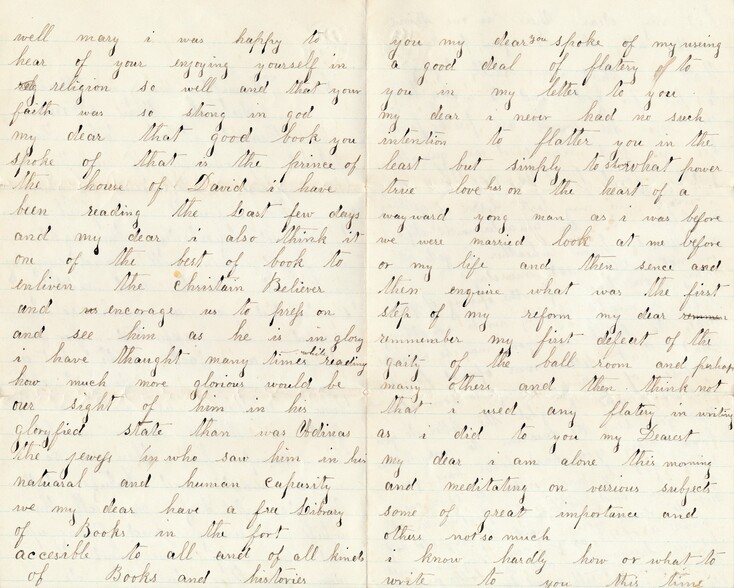 well mary i was happy to
hear of your enjoying yourself in
religion so well and that your
faith was so strong in god
my dear that good book you
spoke of that is the prince of
the house of David i have
been reading the Last few days
and my dear i also think it
one of the best of book to
enliven the Christain Believer
and encorage us to press on
and see him as he is in glory
i have thought many times while reading
how much more glorious would be
our sight of him in his
gloryfied state than was
the jewess who saw him in his
natuaral and human capasity
we my dear have a free Library
of Books in the fort
accesible to all and of all kinds
of Books and histories
you my dear you spoke of my useing
a good deal of flatery to
you in my letter to you
my dear i never had no such
intention to flatter you in the
least but simply to show what power
true love has on the heart of a
wayward yong man as i was before
we were married look at me before
or my life and then sence and
then enquire what was the first
step of my reform my dear
remmember my first defeat of the
gaity of the ball room and perhaps
many others and then think not
that i used any flatery in writing
as i did to you my Dearest
my dear i am alone this morning
and meditating on verrious subjects
some of great importance and
others not so much
i know hardly how or what to
write to you this time